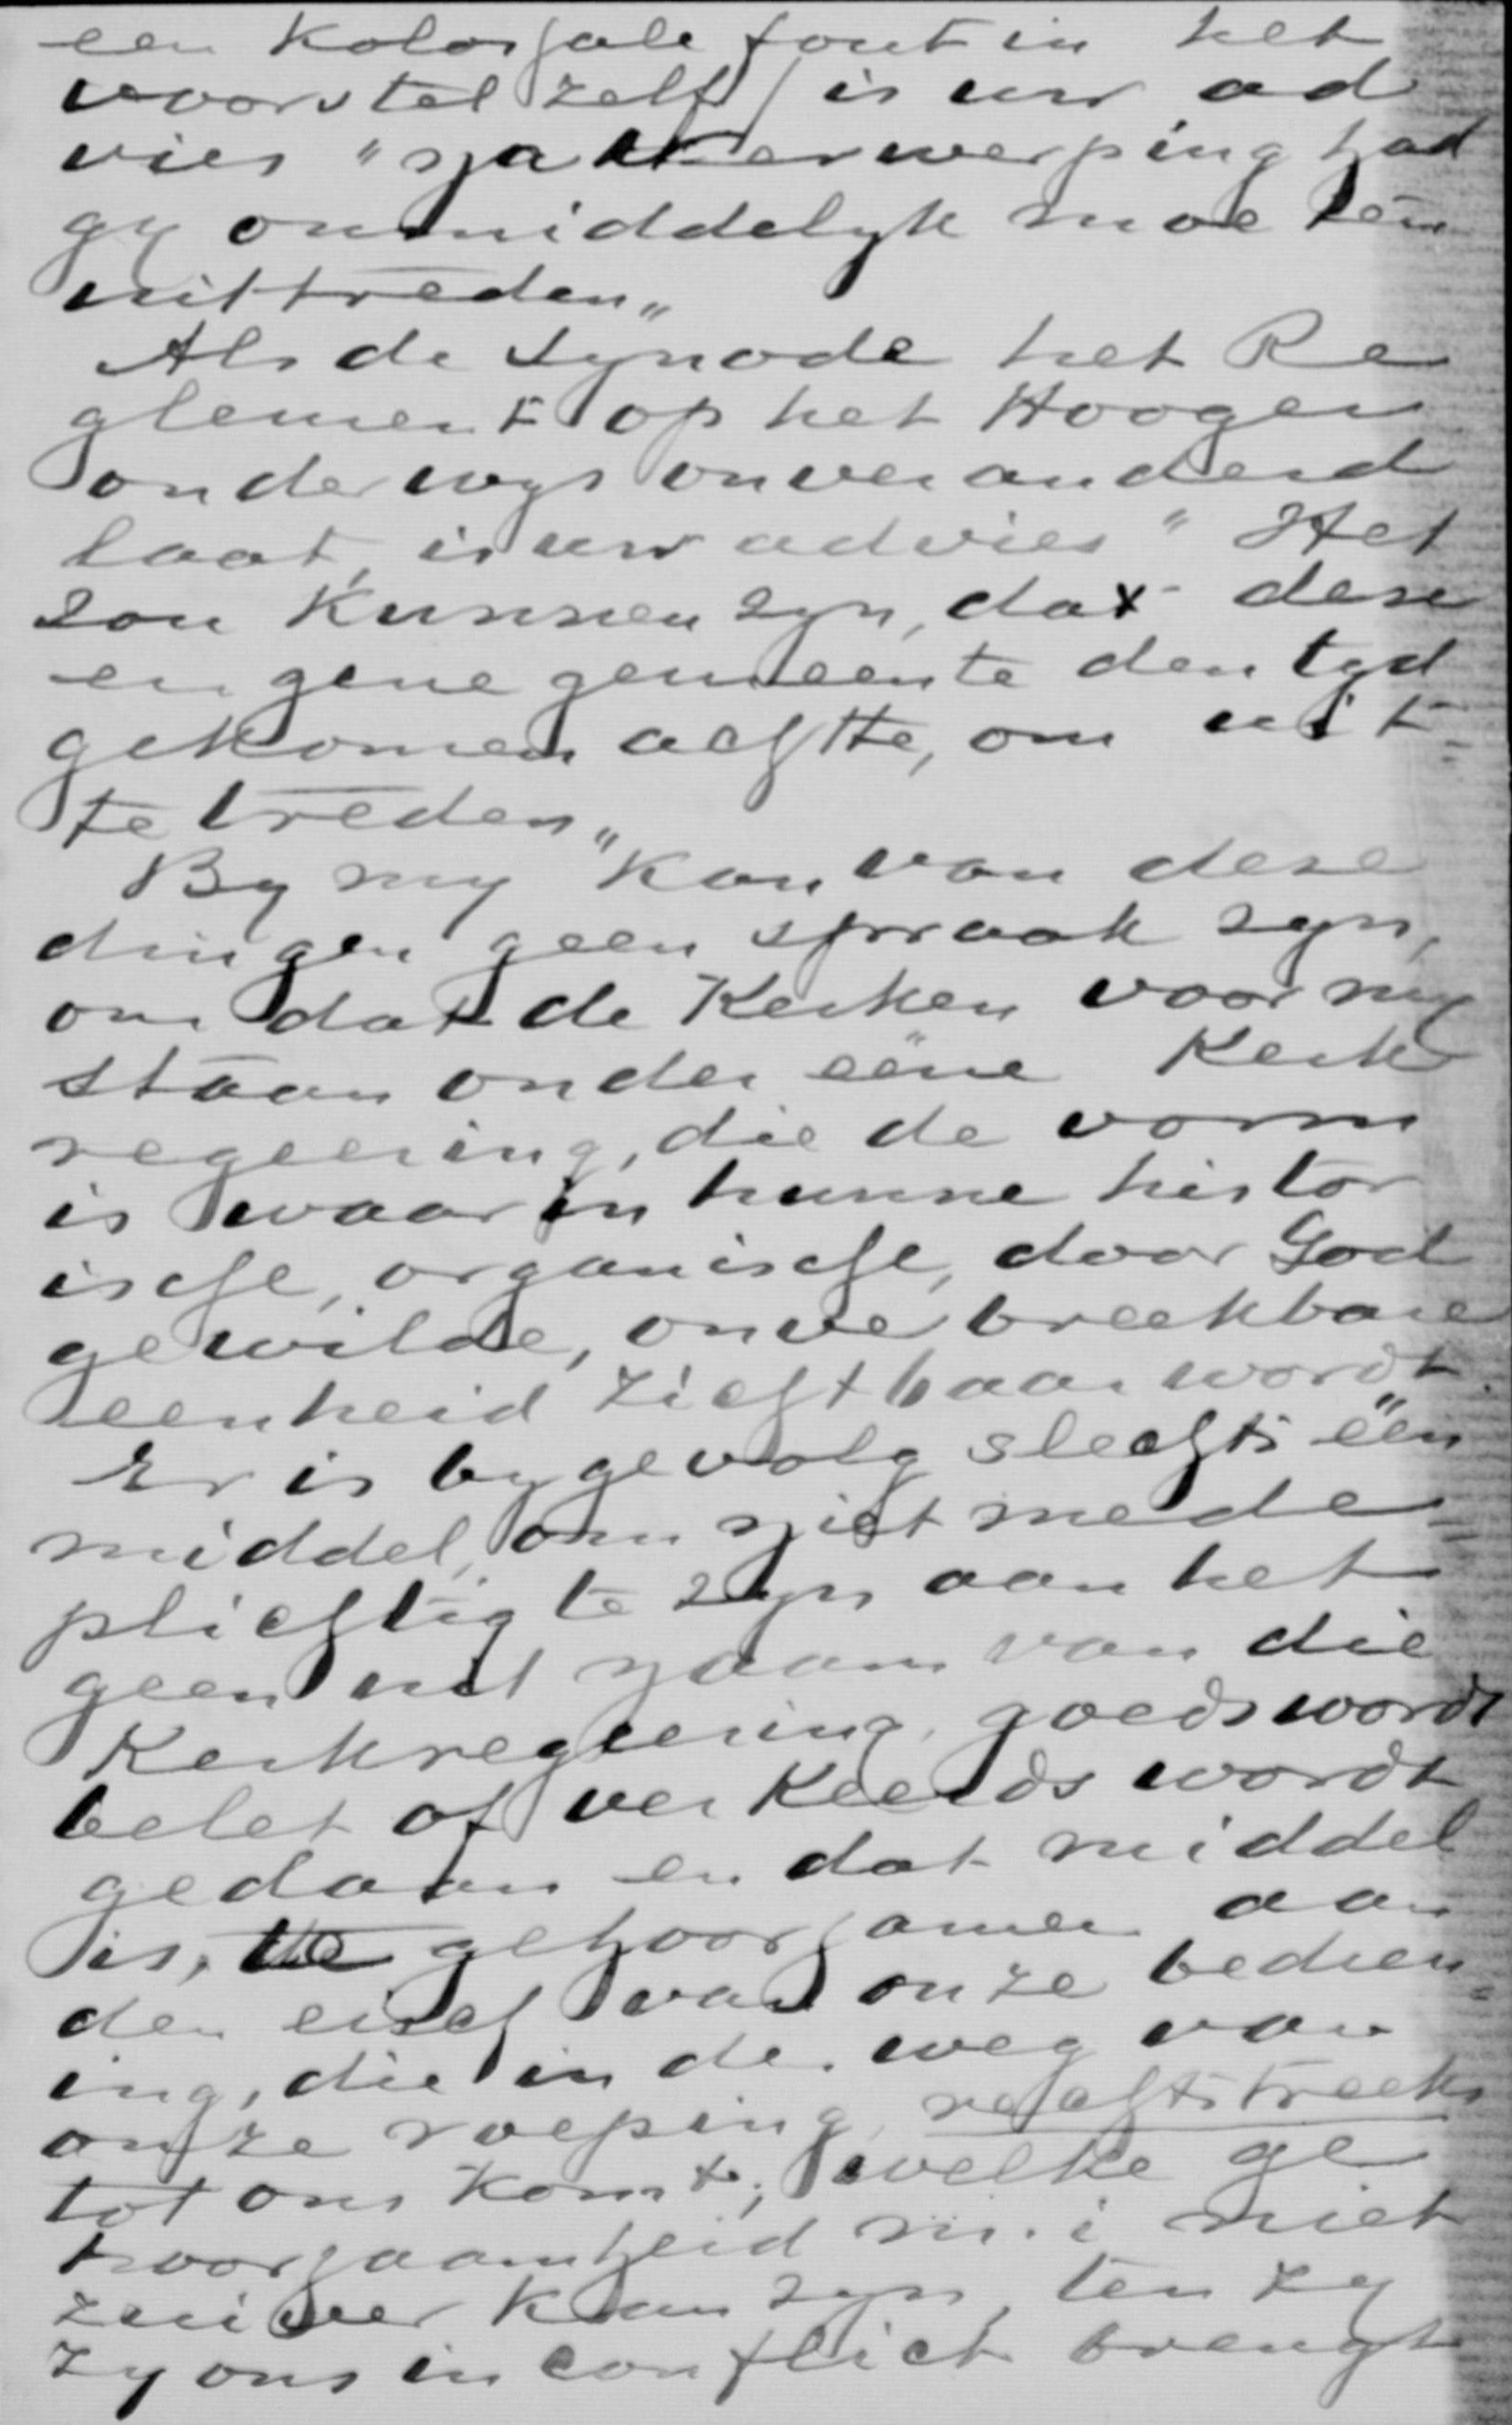 een Kolossale fout in het
voorstel zelf / is uw ad
vies "na verwerping had
gy onmiddelyk moeten
uittreden"
Als de Synode het Re
glement op het Hooger
onderwys onveranderd
laat, is uw advies "Het
zou Kunnen zyn, dat deze
en gene gemeente den tyd
gekomen achtte, om uit-
te treden"
By my Kan van deze
dingen geen spraak zyn,
om dat de Kerken voor my
staan onder eéne Kerk
regeering, die de vorm
is waarin hunne histor
ische, organische, door God
gewilde, onverbreekbare
eenheid zichtbaar wordt.
Er is bygevolg slechts één
middel, om niet mede-
plichtig te zyn aan het
geen uit naam van die
Kerkregeering, goeds wordt
belet of verKeerds wordt
gedaan en dat middel
is, te gehoorzamen aan
den eisch van onze bedien-
ing, die in de weg van
onze roeping rechtstreeks
tot ons Komt; welke ge
hoorzaamheid m. i. niet
zuiver Kan zyn, ten zy
zy ons in conflict brengt